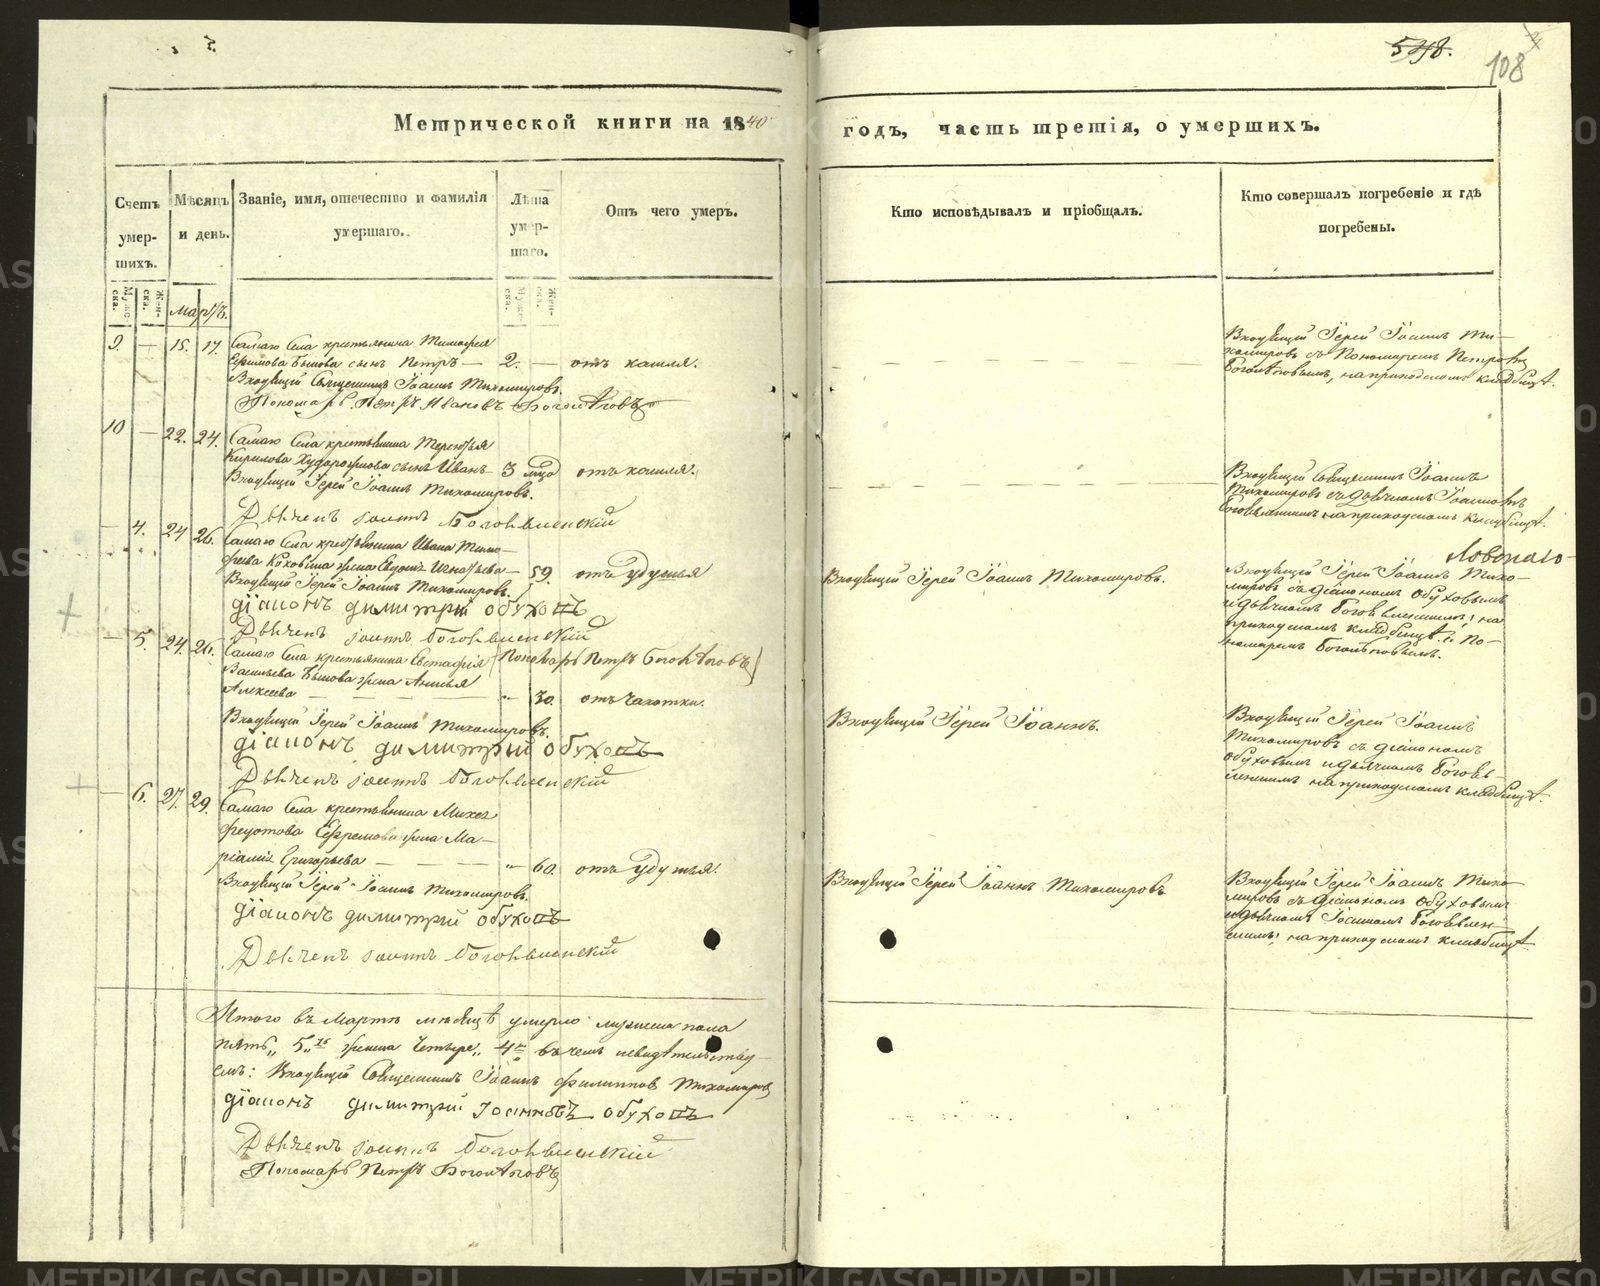 548.
108
Метрической книги на 1840 годъ, часть третія, о умершихъ.
Счетъ умер-шихъ.
Мѣсяцъ и день.
Званіе, имя, отечество и фамилія умершаго.
Лѣта умер-шаго.
Отъ чего умеръ.
Кто исповѣдывалъ и пріобщалъ.
Кто совершалъ погребеніе и гдѣ погребены.
Муже-ска.
Жен-ска.
Мартъ.
Муже-ска.
Жен-ска.
9. — 15. 17. Самаго Села крестьянина Тимофея
Ефимова Бынова сынъ Петръ — 2. — отъ кашля.
Входящій Священникъ Іоаннъ Тихомировъ.
Пономарь Петръ Ивановъ Боголѣповъ
Входящій Іерей Іоаннъ Ти-
хомировъ съ Пономаремъ Петромъ
Боголѣповымъ, на приходскомъ кладбищѣ.
10 — 22. 24. Самаго Села крестьянина Терентья
Кирилова сынъ Иванъ 3 мѣс. отъ кашля.
Входящій Іерей Іоаннъ Тихомировъ.
Дьячекъ Іоаннъ Богоявленскій
Входящій Священникъ Іоаннъ
Тихомировъ съ дьячкомъ Іоанномъ
Богоявленскимъ на приходскомъ кладбищѣ.
— 4. 24 26. Самаго Села крестьянина Ивана Тимо-
феева жена Игнатьева — 59. отъ удушья
Входящій Іерей Іоаннъ Тихомировъ.
Діаконъ Димитрій Обуховъ
Дьячекъ Іоаннъ Богоявленскій
Пономарь Петръ Боголѣповъ
Входящій Іерей Іоаннъ Тихомировъ.
Входящій Іерей Іоаннъ Тихо-
мировъ съ діакономъ Обуховымъ
и дьячкомъ Богоявленскимъ на
приходскомъ кладбищѣ. и По-
номаремъ Боголѣповымъ.
— 5. 24. 26. Самаго Села крестьянина Евстафія
Васильева Бынова жена
Алексеева — „ 30. отъ чахотки.
Входящій Іерей Іоаннъ Тихомировъ.
Діаконъ Димитрій Обуховъ
Дьячекъ Іоаннъ Богоявленскій
Входящій Іерей Іоаннъ.
Входящій Іерей Іоаннъ
Тихомировъ съ діакономъ
Обуховымъ и дьячкомъ Богояв-
ленскимъ на приходскомъ кладбищѣ.
— 6. 27. 29. Самаго Села крестьянина Михея
Федотова Ефремова жена Ма-
Григорьева — „ 60. отъ удушья.
Входящій Іерей Іоаннъ Тихомировъ.
Діаконъ Димитрій Обуховъ
Дьячекъ Іоаннъ Богоявленскій
Входящій Іерей Іоаннъ Тихомировъ
Входящій Іерей Іоаннъ Тихо-
мировъ съ діакономъ Обуховымъ
и дьячкомъ Іоанномъ Богоявлен-
скимъ; на приходскомъ кладбищѣ.
Итого въ Мартѣ мѣсяцѣ умерло мужеска пола
пять „ 5 „ женска четыре „ 4 „ въ чемъ и свидѣтельству-
емъ: Входящій Священникъ Іоаннъ Филипповъ Тихомировъ
Діаконъ Димитрій Іоанновъ Обуховъ
Дьячекъ Іоаннъ Богоявленскій
Пономарь Петръ Боголѣповъ
METRIKI.GASO-URAL.RU